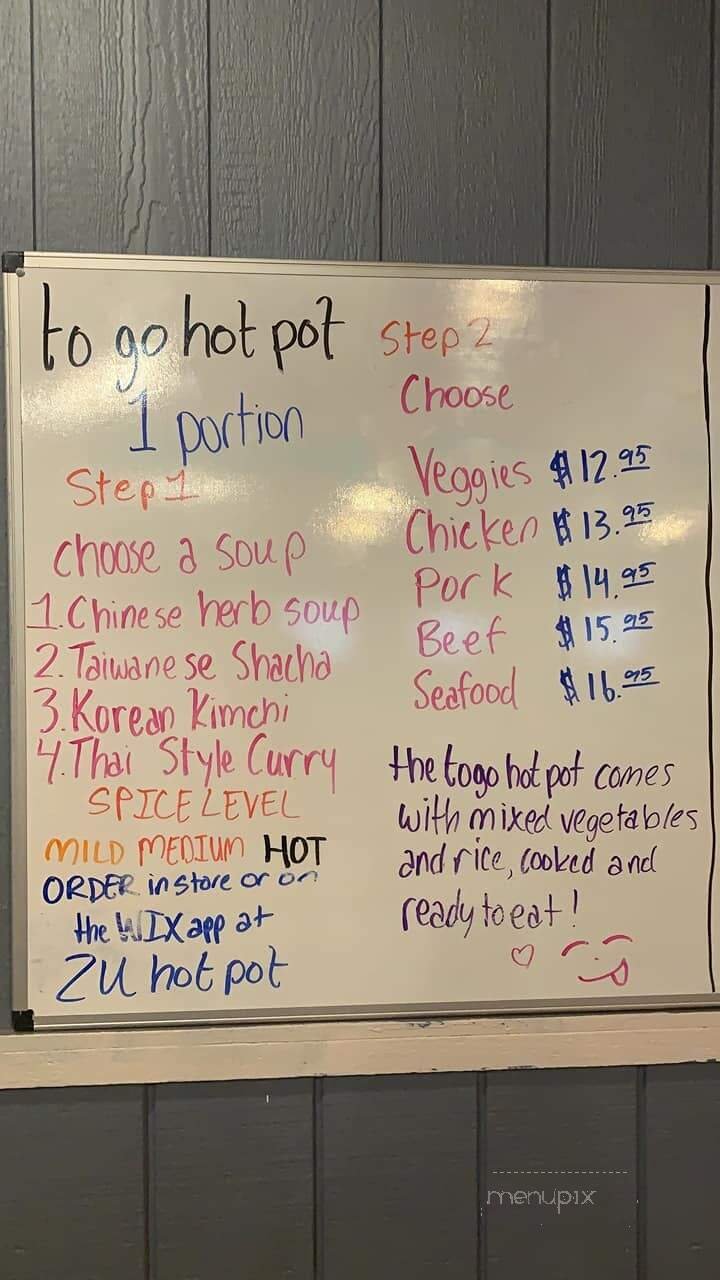 to go hot pot
1 portion
Step 1
choose a soup
1. Chinese herb soup
2. Taiwanese Shacha
3. Korean Kimchi
4. Thai Style Curry
SPICE LEVEL
MILD MEDIUM HOT
ORDER in store or on
the WIX app at
ZU hot pot
Step 2
Choose
Veggies $12.95
Chicken $13.95
Pork $14.95
Beef $15.95
Seafood $16.95
the togo hot pot comes
with mixed vegetables
and rice, cooked and
ready to eat!
menupix